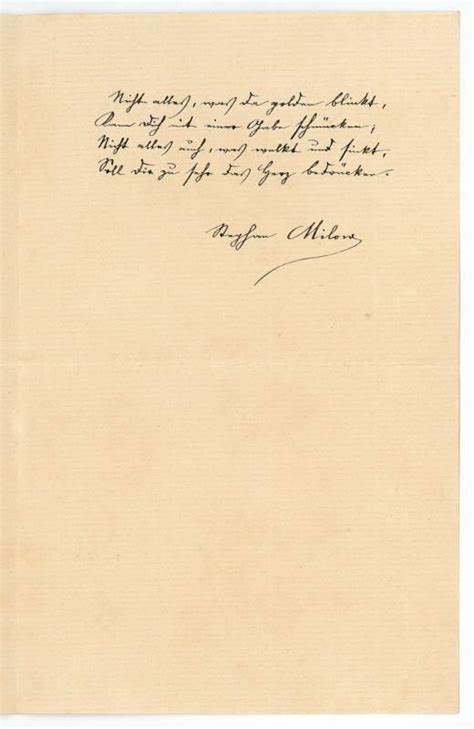 Nicht alles, was da golden blinkt,
Kann Dich mit einer Gabe schmücken;
Nicht alles auch, was welkt und sinkt,
Soll Dir zu sehr das Herz bedrücken.
Stephan Milow